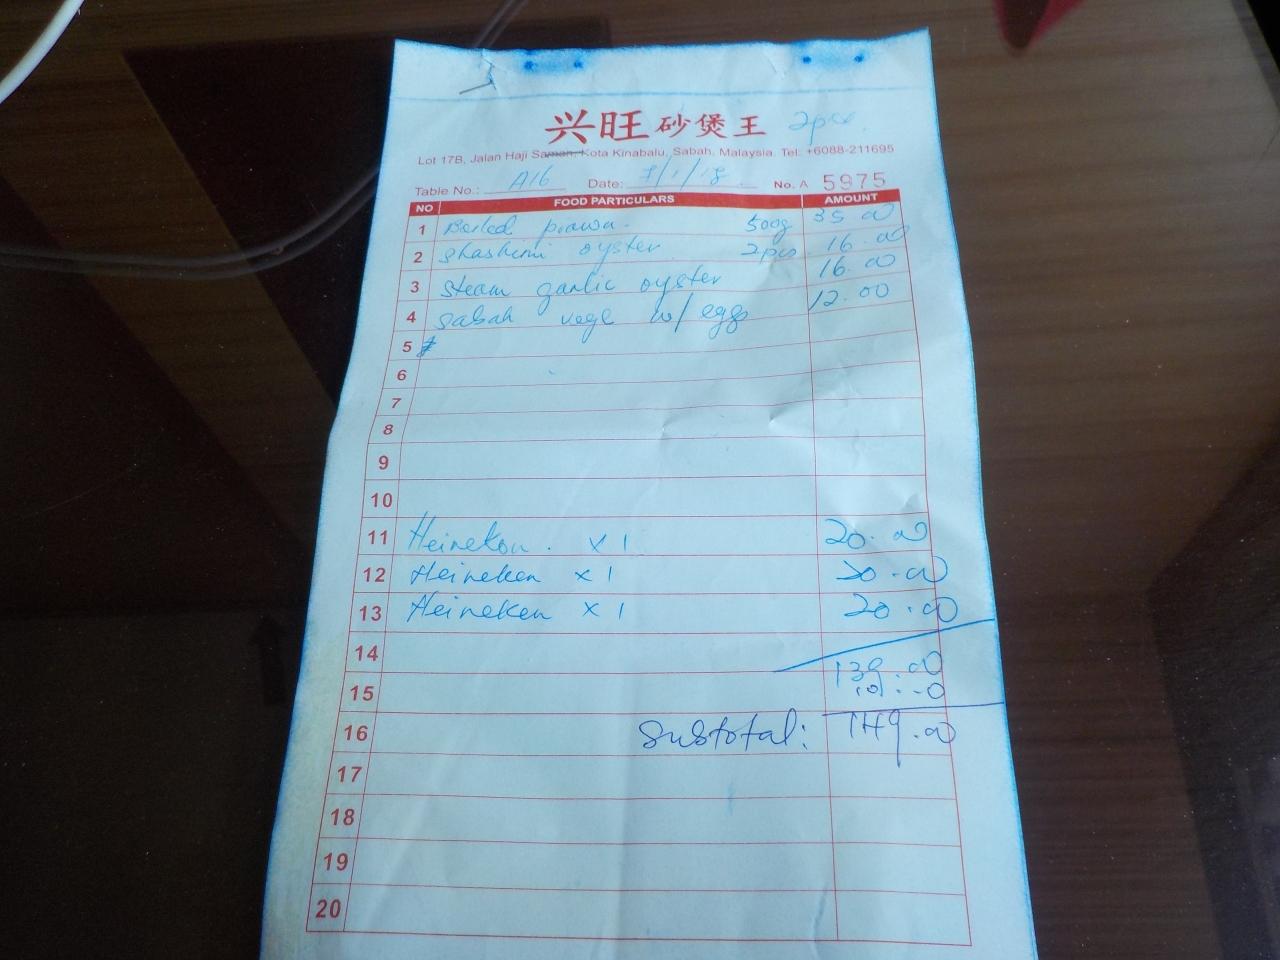 兴旺砂煲王 2pcs
Lot 17B, Jalan Haji Saman, Kota Kinabalu, Sabah, Malaysia. Tel: +6088-211695
Table No.: A16 Date: 8/1/18 No. A 5975
NO FOOD PARTICULARS AMOUNT
1 Boiled prawn. 500g 35.00
2 Shashimi oyster 2pcs 16.00
3 Steam garlic oyster 16.00
4 Sabah vege w/ eggs 12.00
5
6
7
8
9
10
11 Heineken. x 1 20.00
12 Heineken x 1 20.00
13 Heineken x 1 20.00
14 139.00
15 10.-0
16 Subtotal: 149.00
17
18
19
20